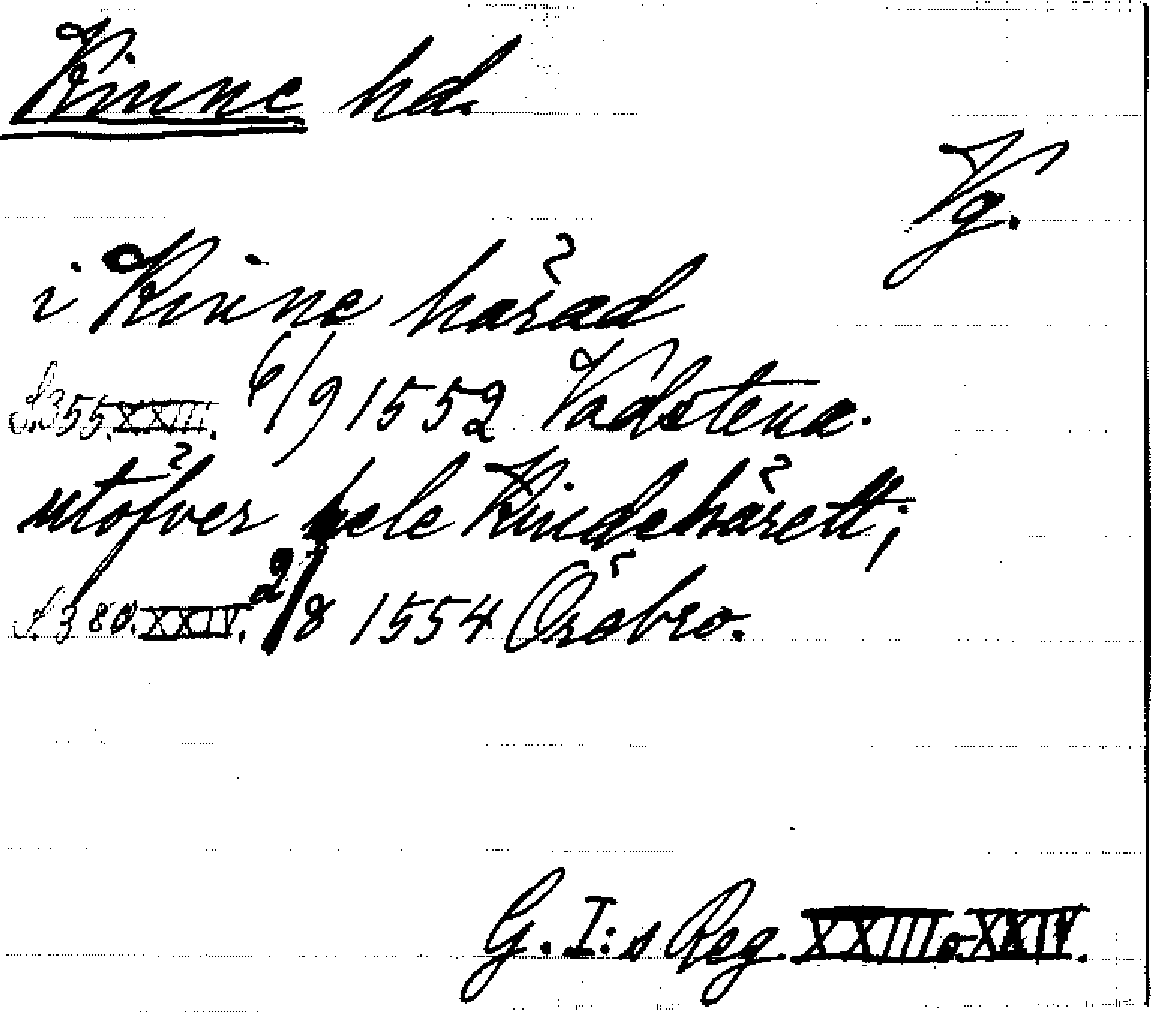 Kinne hd.
Vg.
i Kinne härad
S. 355. XXIII. 6/9 1552 Vadstena.
utöfver hele Kindehärett;
S. 380. XXIV. 2/8 1554 Örebro.
G. I:s Reg. XXIII o. XXIV.